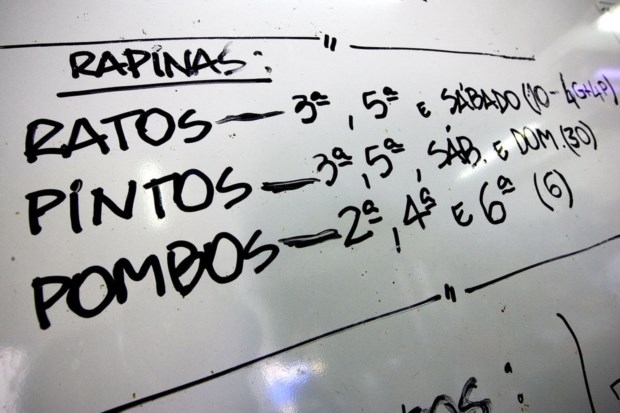 RAPINAS:
RATOS — 3ª, 5ª E SÁBADO (10 - 4G+4P)
PINTOS — 3ª, 5ª, SÁB. E DOM. (30)
POMBOS — 2ª, 4ª E 6ª (6)